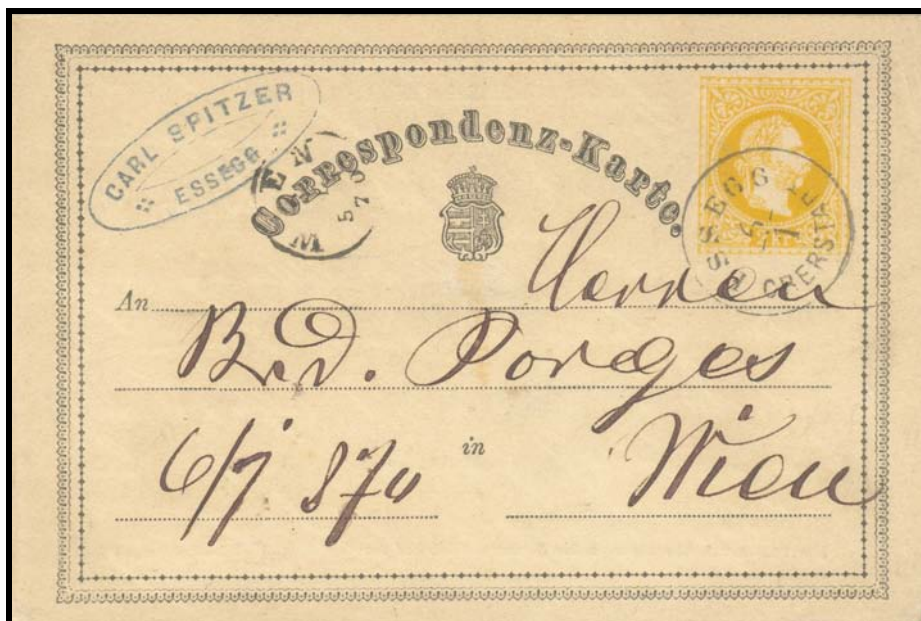 CARL SPITZER
ESSEGG
Correspondenz-Karte.
ESSEGG OBERSTADT
5 7
An Herren
Brd. Porges
6/7 870
in Wien